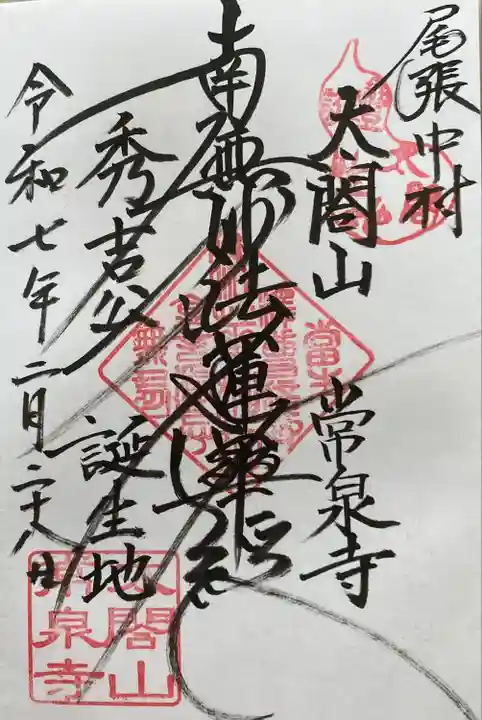 尾張中村
太閤山
常泉寺
南無妙法蓮華経
秀吉公
誕生地
令和七年二月二八日
太閤山
常泉寺